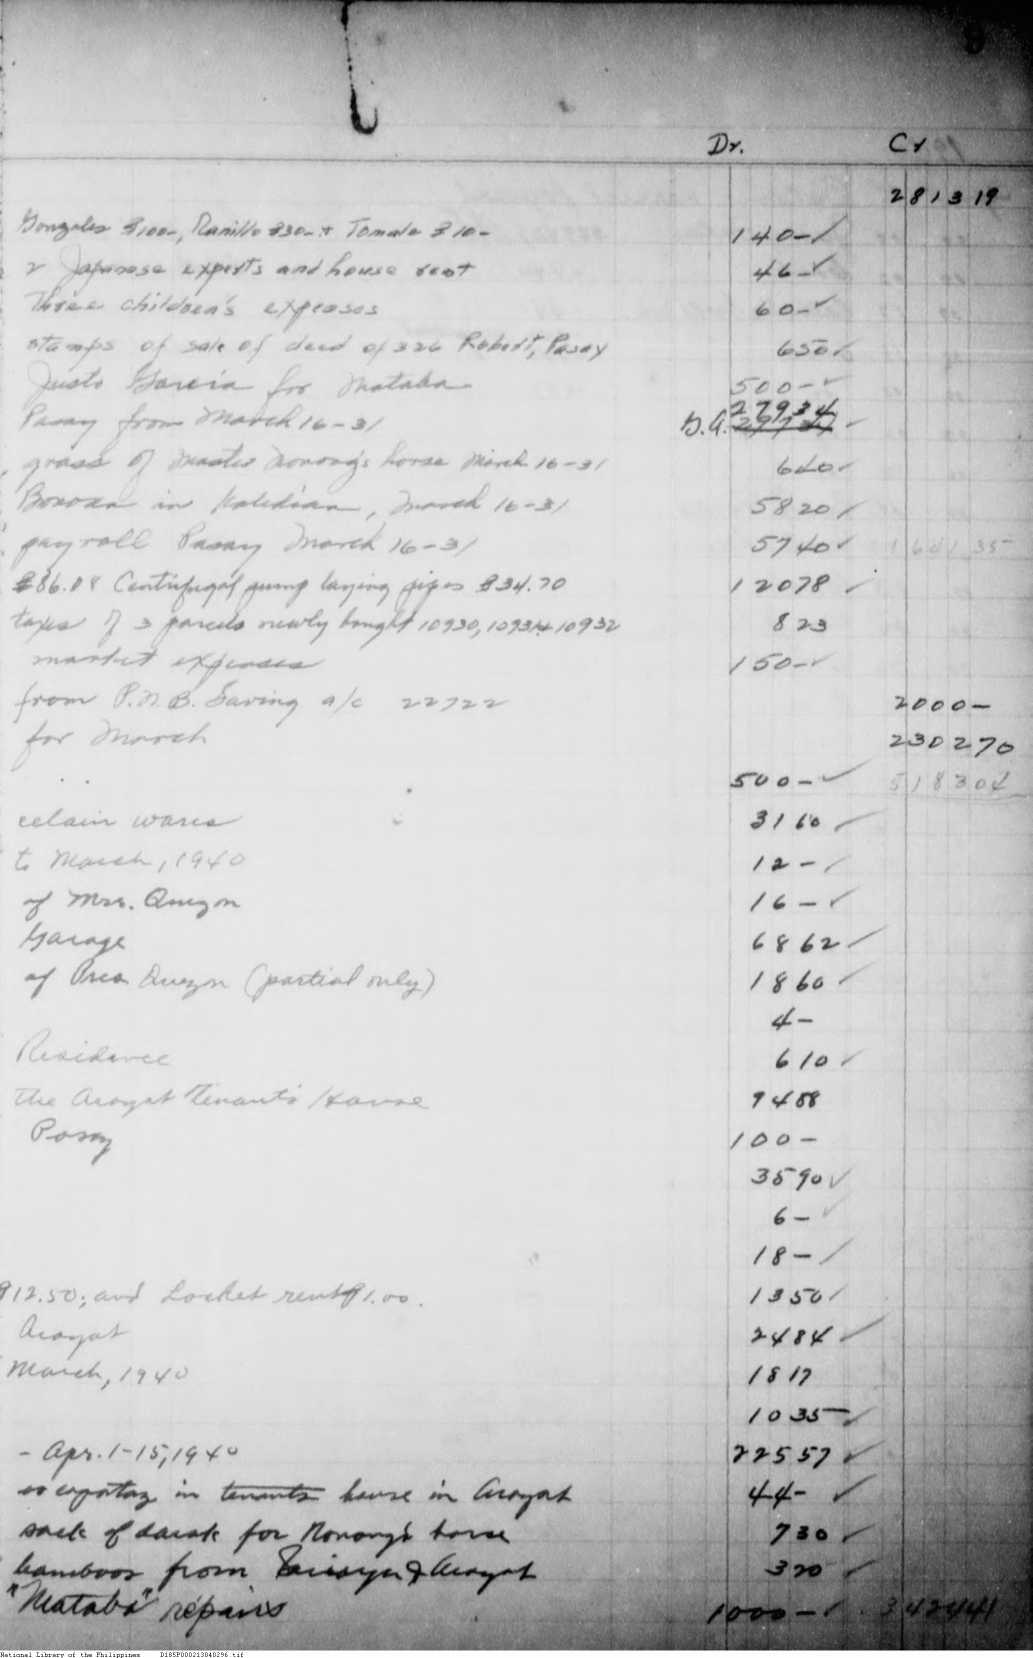 Dr. Cr
281319
Gonzales ₱100-, Ramillo ₱30- + Tomale ₱10- 140-
2 Japanese experts and house rent 46-
Three children's expenses 60-
stamps of sale of deed of 326 Robert, Pasay 650
Justo Garcia for Mataba 500-
Pasay from March 16-31 G.A. 27934
grass of Master Nonong's horse March 16-31 640
in , March 16-31 5820
payroll Pasay March 16-31 5740 164135
₱86.08 Centrifugal pump laying pipes ₱34.70 12078
taxes of 3 parcels newly bought 10930, 10931 + 10932 823
market expenses 150-
from P.N.B. Saving a/c 22722 2000-
for March 230270
500- 518304
celain wares 3160
to March, 1940 12-
of Mrs. Quezon 16-
Garage 6862
of Pres Quezon (partial only) 1860
4-
Residence 610
the Arayat Tenant's House 9488
Pasay 100-
3590
6-
18-
₱12.50; and Locket rent ₱1.00. 1350
Arayat 2484
March, 1940 1817
1035
- Apr. 1-15, 1940 22557
in tenants house in Arayat 44-
sack of darak for Nonong's horse 730
bamboos from & Arayat 320
"Mataba" repairs 1000- 342441
National Library of the Philippines D185P000213840296.tif